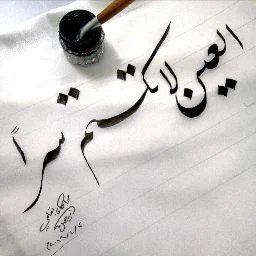 العين لا تكتم سراً